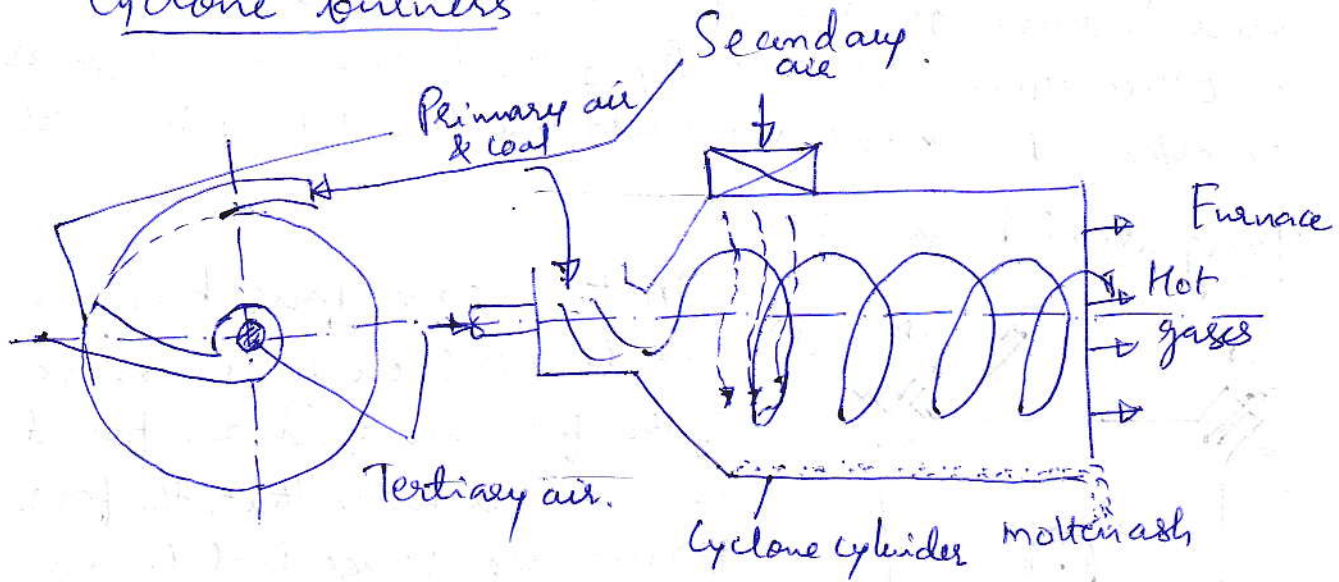 Cyclone burners
Secondary
air
Primary air
& coal
Furnace
Hot
gases
Tertiary air.
Cyclone cylinder
molten ash